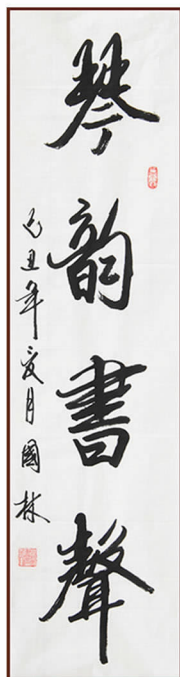 琴韵書聲
己丑年夏月國林